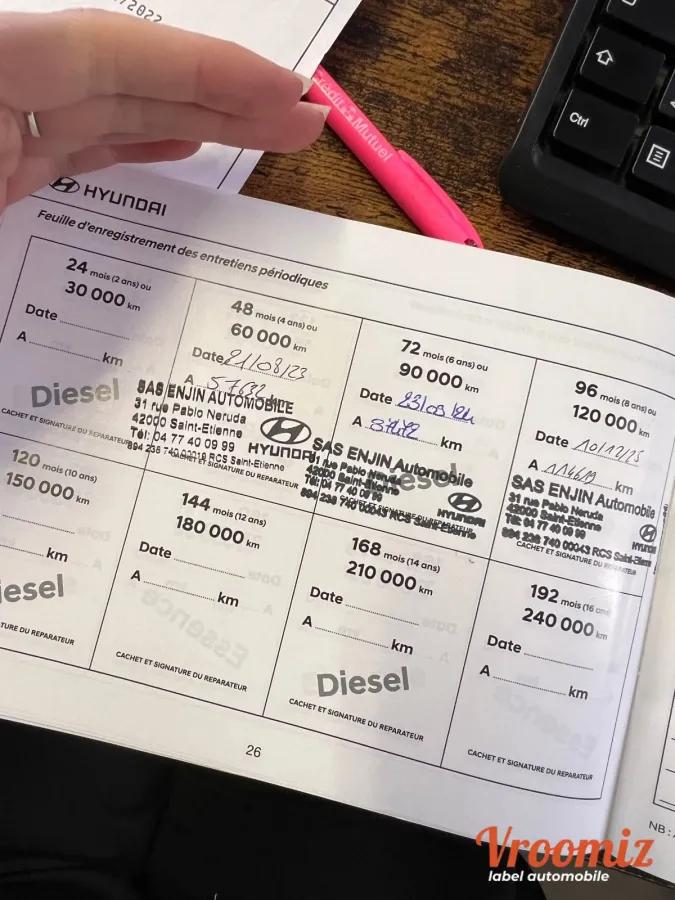 /2022
Crédit Mutuel
Ctrl
HYUNDAI
Feuille d'enregistrement des entretiens périodiques
24 mois (2 ans) ou
30 000 km
Date
A km
Diesel
CACHET ET SIGNATURE DU REPARATEUR
48 mois (4 ans) ou
60 000 km
Date 21/08/23
A 57632 km
SAS ENJIN AUTOMOBILE
31 rue Pablo Neruda
42000 Saint-Etienne
Tél: 04 77 40 09 99
894 238 740 00043 RCS Saint-Etienne
HYUNDAI
CACHET ET SIGNATURE DU REPARATEUR
72 mois (6 ans) ou
90 000 km
Date 23/09/24
A km
Diesel
SAS ENJIN Automobile
31 rue Pablo Neruda
42000 Saint-Etienne
Tél: 04 77 40 09 99
894 238 740 00043 RCS Saint-Etienne
HYUNDAI
96 mois (8 ans) ou
120 000 km
Date 10/12/25
A 114619 km
SAS ENJIN Automobile
31 rue Pablo Neruda
42000 Saint-Etienne
Tél: 04 77 40 09 99
894 238 740 00043 RCS Saint-Etienne
CACHET ET SIGNATURE DU REPARATEUR
120 mois (10 ans)
150 000 km
km
iesel
TURE DU REPARATEUR
144 mois (12 ans)
180 000 km
Date
A km
CACHET ET SIGNATURE DU REPARATEUR
168 mois (14 ans)
210 000 km
Date
A km
Diesel
CACHET ET SIGNATURE DU REPARATEUR
192 mois (16 ans
240 000 km
Date
A km
CACHET ET SIGNATURE DU REPARATEUR
26
NB :
Vroomiz
label automobile